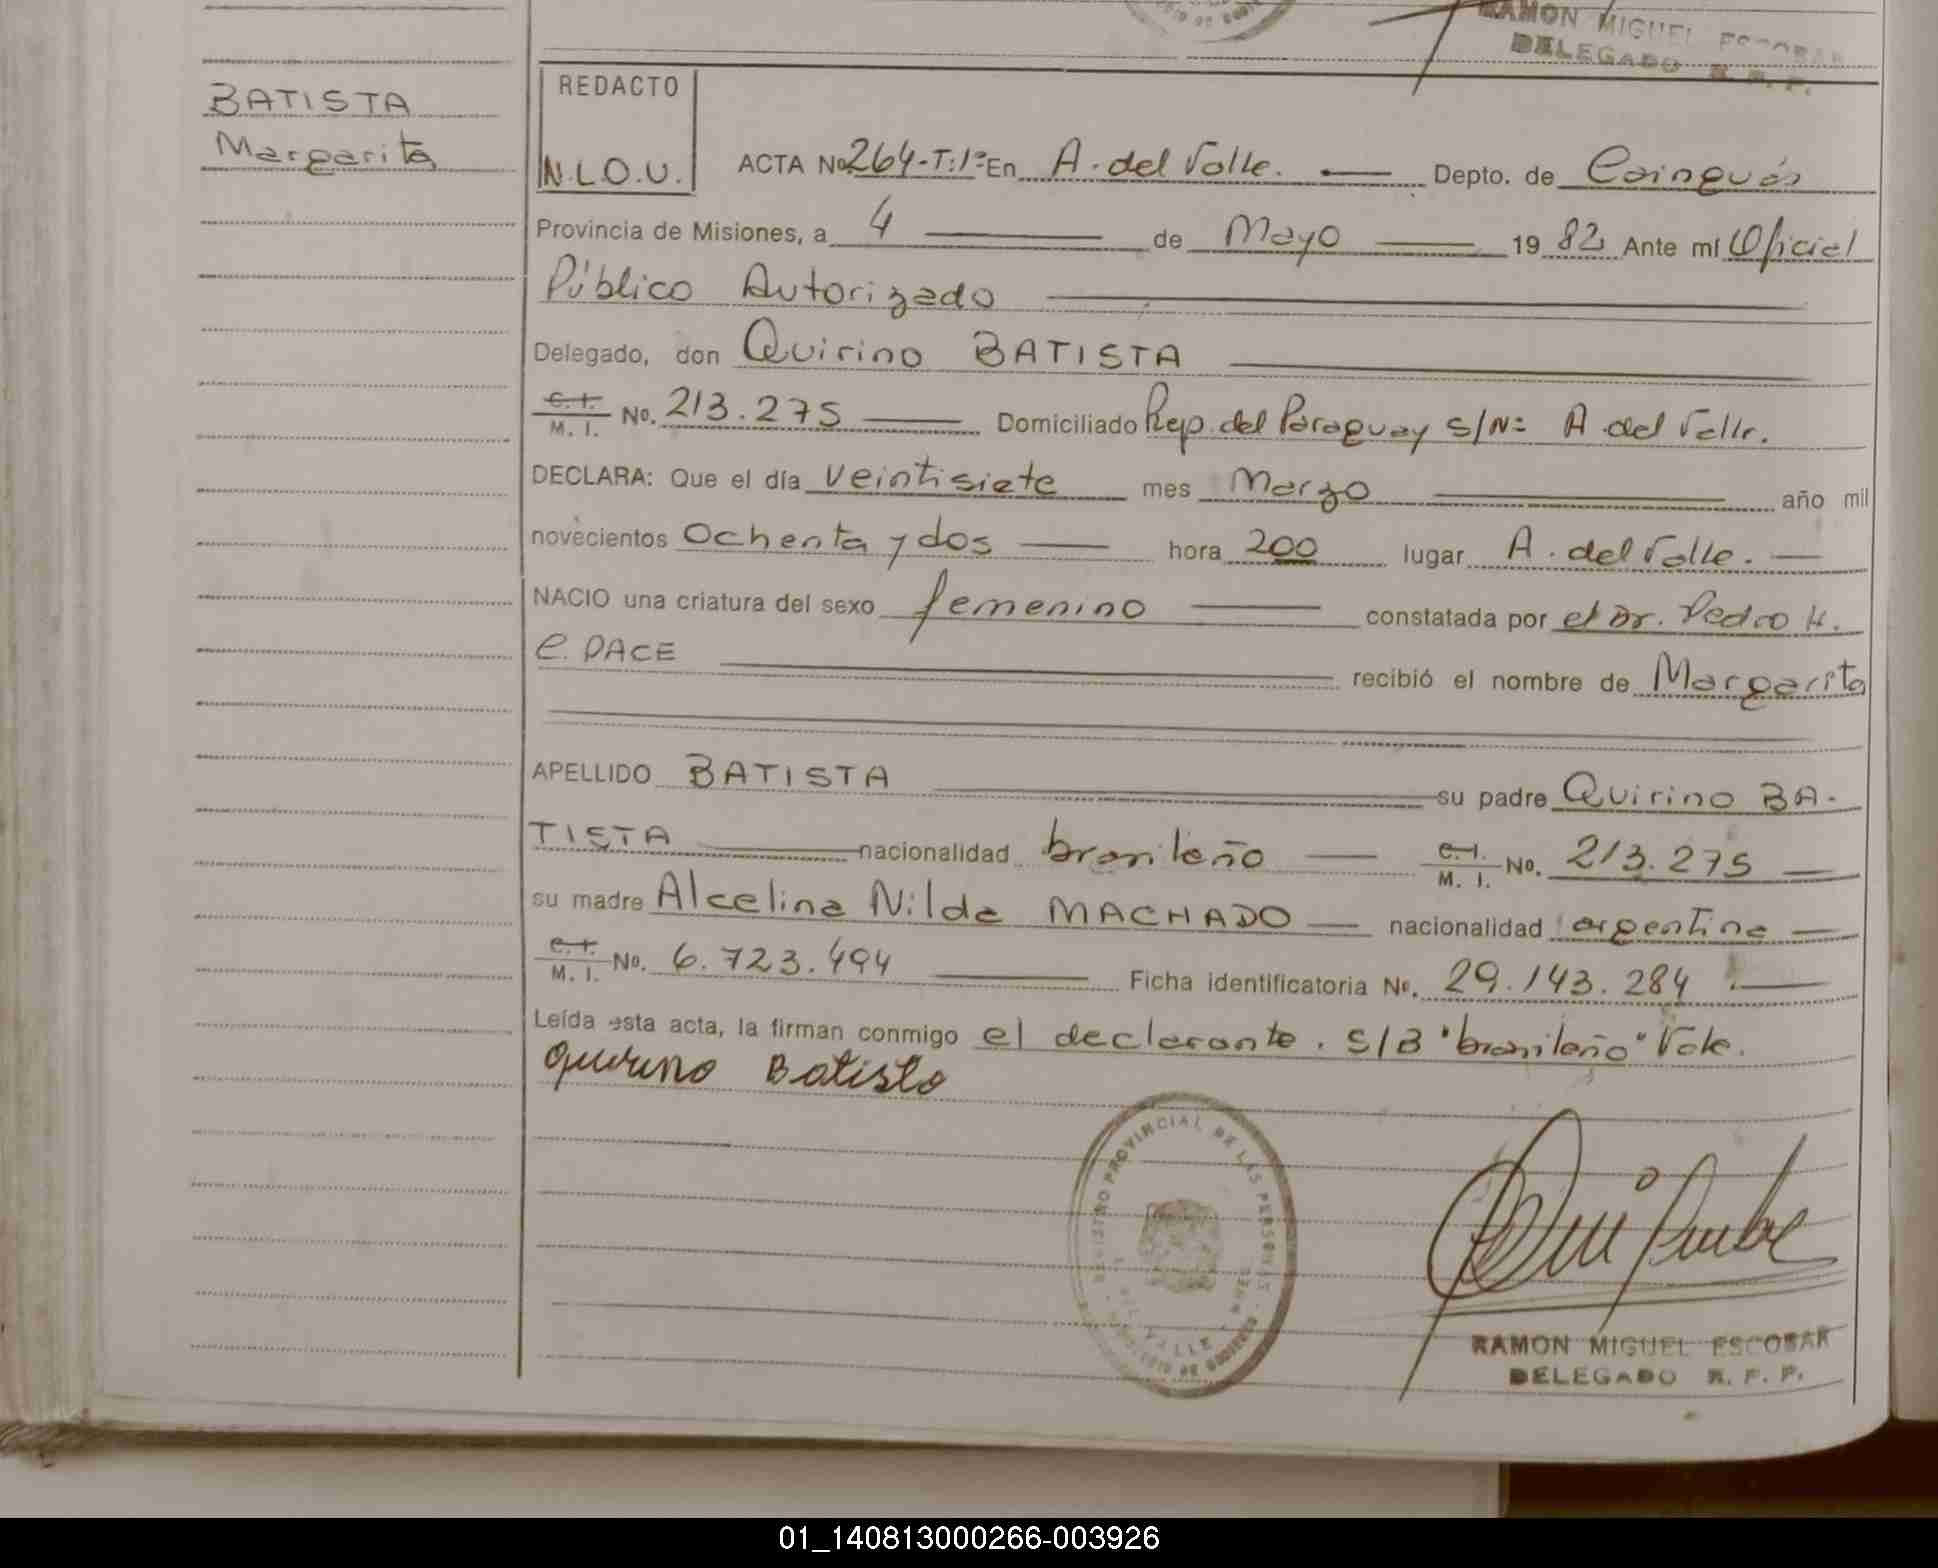 RAMON MIGUEL ESCOBAR
DELEGADO R. P. P.
BATISTA
Margarita
REDACTO
N.L.O.U.
ACTA No 264-T:1º En A. del Valle. — Depto. de Cainguás
Provincia de Misiones, a 4 — de Mayo — 19 82 Ante mí Oficial
Público Autorizado —
Delegado, don Quirino BATISTA —
C. I. / M. I. No. 213.275 — Domiciliado Rep. del Paraguay S/Nº A. del Valle.
DECLARA: Que el día veintisiete mes Marzo — año mil
novecientos Ochenta y dos — hora 200 lugar A. del Valle. —
NACIO una criatura del sexo femenino — constatada por el Dr. Pedro H.
E. PACE — recibió el nombre de Margarita
APELLIDO BATISTA — su padre Quirino BA-
TISTA — nacionalidad brasileño — C. I. / M. I. No. 213.275 —
su madre Alcelina Nilda MACHADO — nacionalidad argentina —
C. I. / M. I. No. 6.723.494 — Ficha identificatoria No. 29.143.284 —
Leída esta acta, la firman conmigo el declarante. S/B "brasileño" Vale.
Quirino Batista
REGISTRO PROVINCIAL DE LAS PERSONAS
DEL VALLE
RAMON MIGUEL ESCOBAR
DELEGADO R. P. P.
01_140813000266-003926